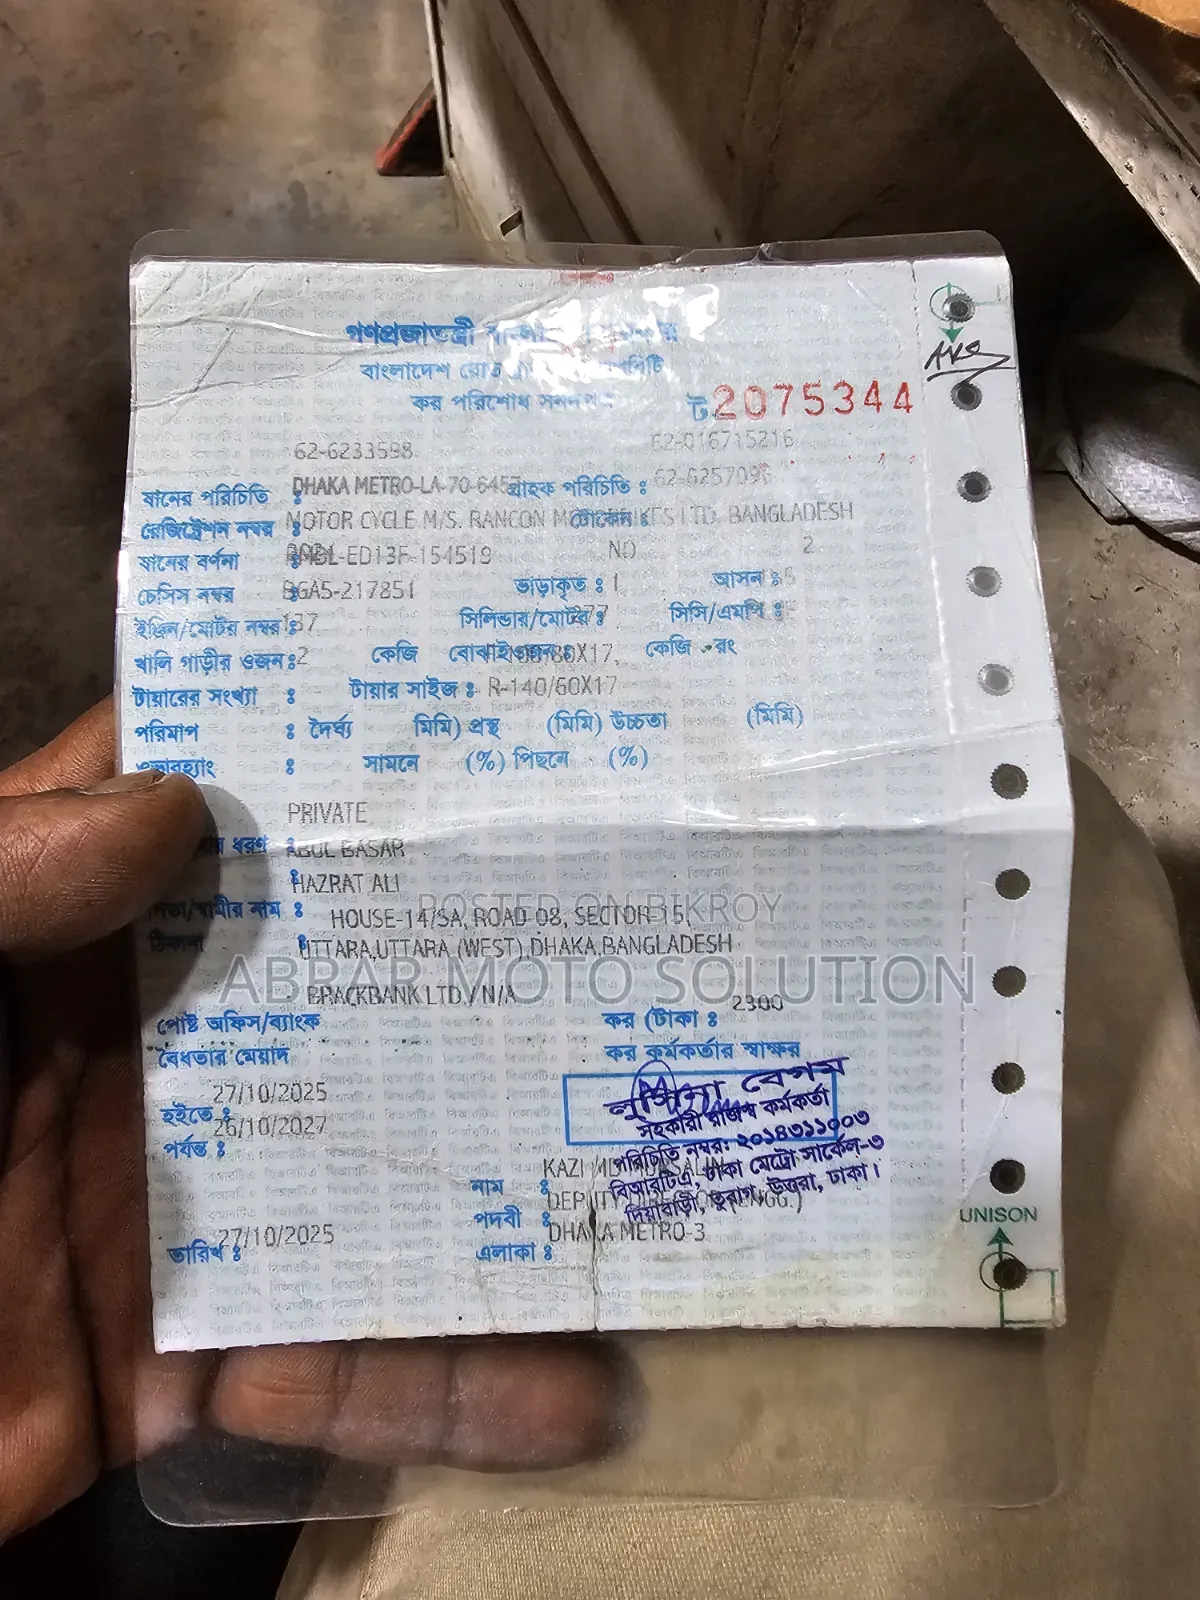 গণপ্রজাতন্ত্রী
বাংলাদেশ রোড
কর পরিশোধ সনদপত্র
ট 2075344
62-6233598
62-016715216
যানের পরিচিতি :
গ্রাহক পরিচিতি :
62-625709
DHAKA METRO-LA-70-645
রেজিট্রেশন নম্বর :
টোকেন :
MOTOR CYCLE M/S. RANCON BANGLADESH
যানের বর্ণনা :
-ED13F-154519
NO
2
চেসিস নম্বর :
BGA5-217851
ভাড়াকৃত : 1
আসন :
ইঞ্জিন/মোটর নম্বর :
137
সিলিন্ডার/মোটর :
277
সিসি/এমপি :
খালি গাড়ীর ওজন :
2
কেজি
বোঝাই ওজন :
কেজি
রং
টায়ারের সংখ্যা :
টায়ার সাইজ : R-140/60X17
পরিমাপ : দৈর্ঘ্য মিমি) প্রস্থ (মিমি) উচ্চতা (মিমি)
ওভারহ্যাং : সামনে (%) পিছনে (%)
PRIVATE
ধরণ :
ABUL BASAR
HAZRAT ALI
পিতা/স্বামীর নাম :
POSTED ON BIKROY
HOUSE-14/5A, ROAD-08, SECTOR-15,
ঠিকানা :
UTTARA,UTTARA (WEST),DHAKA,BANGLADESH
ABRAR MOTO SOLUTION
BRACKBANK LTD./ N/A
পোষ্ট অফিস/ব্যাংক
কর (টাকা :
2300
বৈধতার মেয়াদ
কর কর্মকর্তার স্বাক্ষর
27/10/2025
হইতে :
26/10/2027
পর্যন্ত :
লুসিনা বেগম
সহকারী রাজস্ব কর্মকর্তা
পরিচিতি নম্বর: ২০১৪৩১১০০৩
বিআরটিএ, ঢাকা মেট্রো সার্কেল-৩
দিয়াবাড়ী, তুরাগ, উত্তরা, ঢাকা।
KAZI MD. MORSALIN
নাম :
DEPUTY DIRECTOR (ENGG.)
পদবী :
DHAKA METRO-3
এলাকা :
27/10/2025
তারিখ :
UNISON